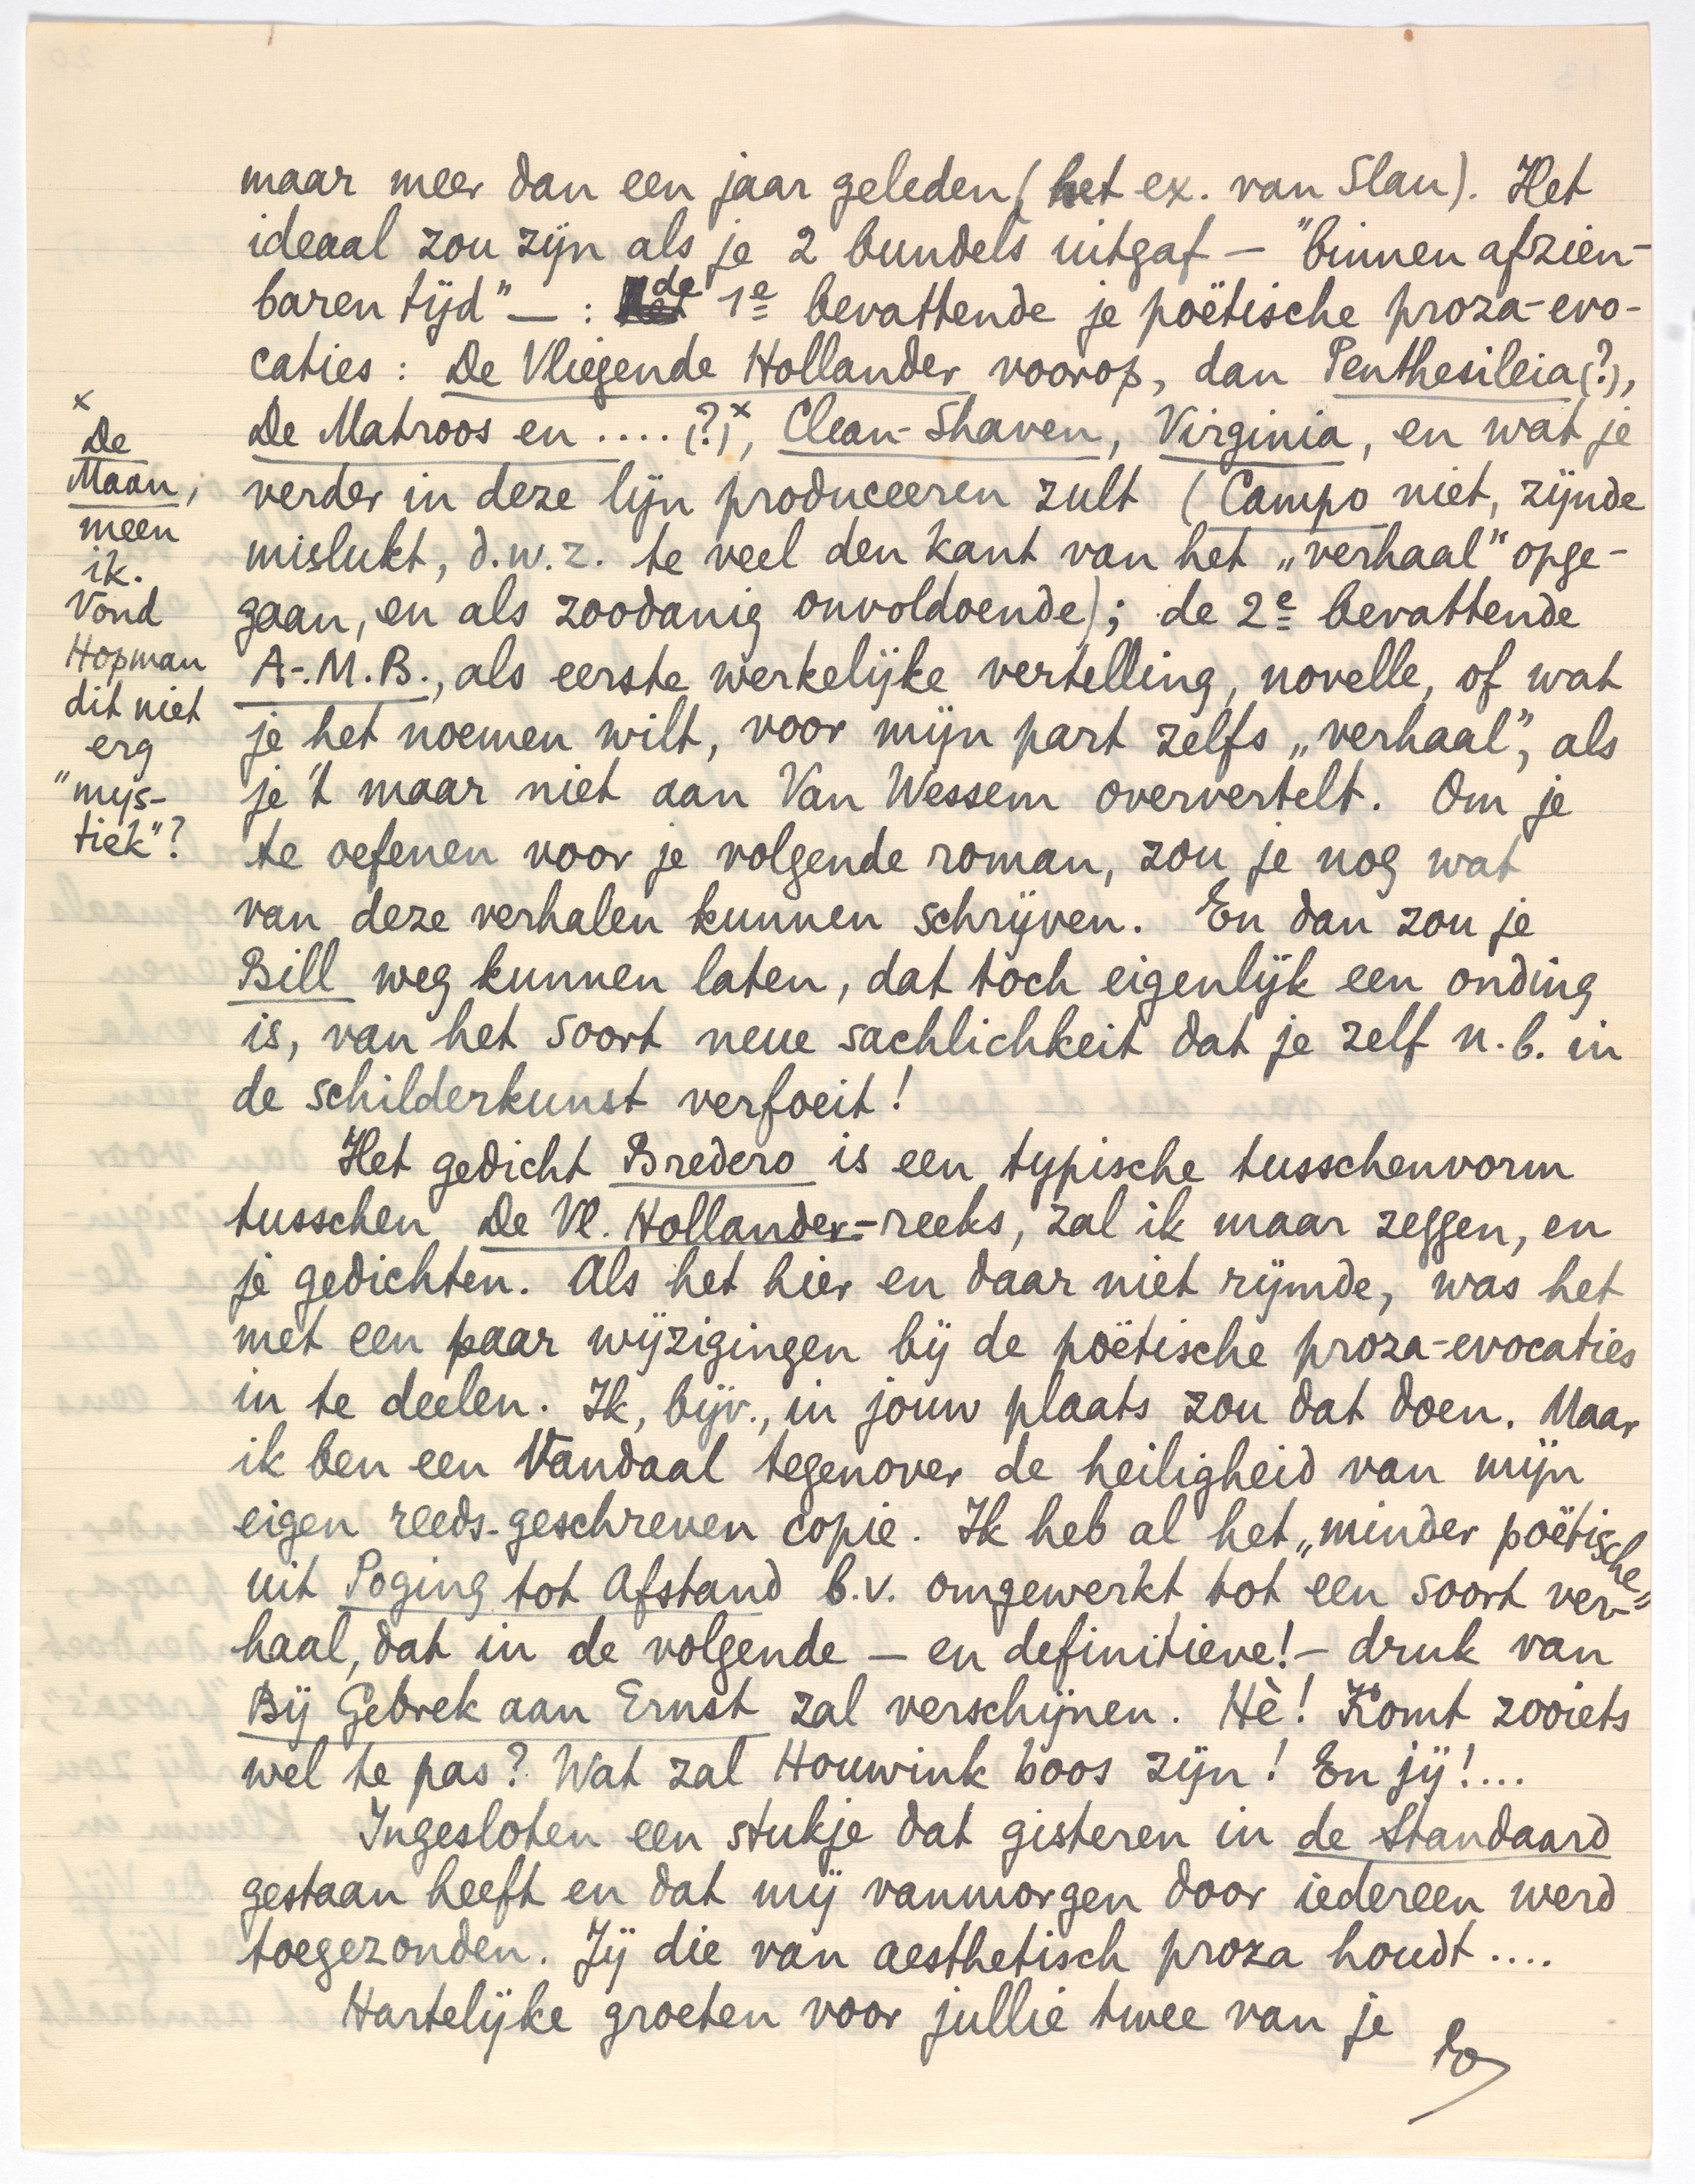 maar meer dan een jaar geleden (het ex. van Slau). Het
ideaal zou zijn als je 2 bundels uitgaf — "binnen afzien-
baren tijd" — : de 1e bevattende je poëtische proza-evo-
caties : De Vliegende Hollander voorop, dan Penthesileia (?),
De Matroos en .... (?)x, Clean-Shaven, Virginia, en wat je
verder in deze lijn produceeren zult (Campo niet, zijnde
mislukt, d.w.z. te veel den kant van het „verhaal" opge-
gaan, en als zoodanig onvoldoende); de 2e bevattende
A.-M.B., als eerste werkelijke vertelling, novelle, of wat
je het noemen wilt, voor mijn part zelfs „verhaal", als
je 't maar niet aan Van Wessem oververtelt. Om je
te oefenen voor je volgende roman, zou je nog wat
van deze verhalen kunnen schrijven. En dan zou je
Bill weg kunnen laten, dat toch eigenlijk een onding
is, van het soort neue sachlichkeit dat je zelf n.b. in
de schilderkunst verfoeit!
Het gedicht Bredero is een typische tusschenvorm
tusschen De Vl. Hollander-reeks, zal ik maar zeggen, en
je gedichten. Als het hier en daar niet rijmde, was het
met een paar wijzigingen bij de poëtische proza-evocaties
in te deelen. Ik, bijv., in jouw plaats zou dat doen. Maar
ik ben een Vandaal tegenover de heiligheid van mijn
eigen reeds-geschreven copie. Ik heb al het „minder poëtische"
uit Poging tot Afstand b.v. omgewerkt tot een soort ver-
haal, dat in de volgende — en definitieve! — druk van
Bij Gebrek aan Ernst zal verschijnen. Hè! Komt zooiets
wel te pas? Wat zal Houwink boos zijn! En jij!...
Ingesloten een stukje dat gisteren in de Standaard
gestaan heeft en dat mij vanmorgen door iedereen werd
toegezonden. Jij die van aesthetisch proza houdt ....
Hartelijke groeten voor jullie twee van je
x
De
Maan,
meen
ik.
Vond
Hopman
dit niet
erg
"mys-
tiek"?